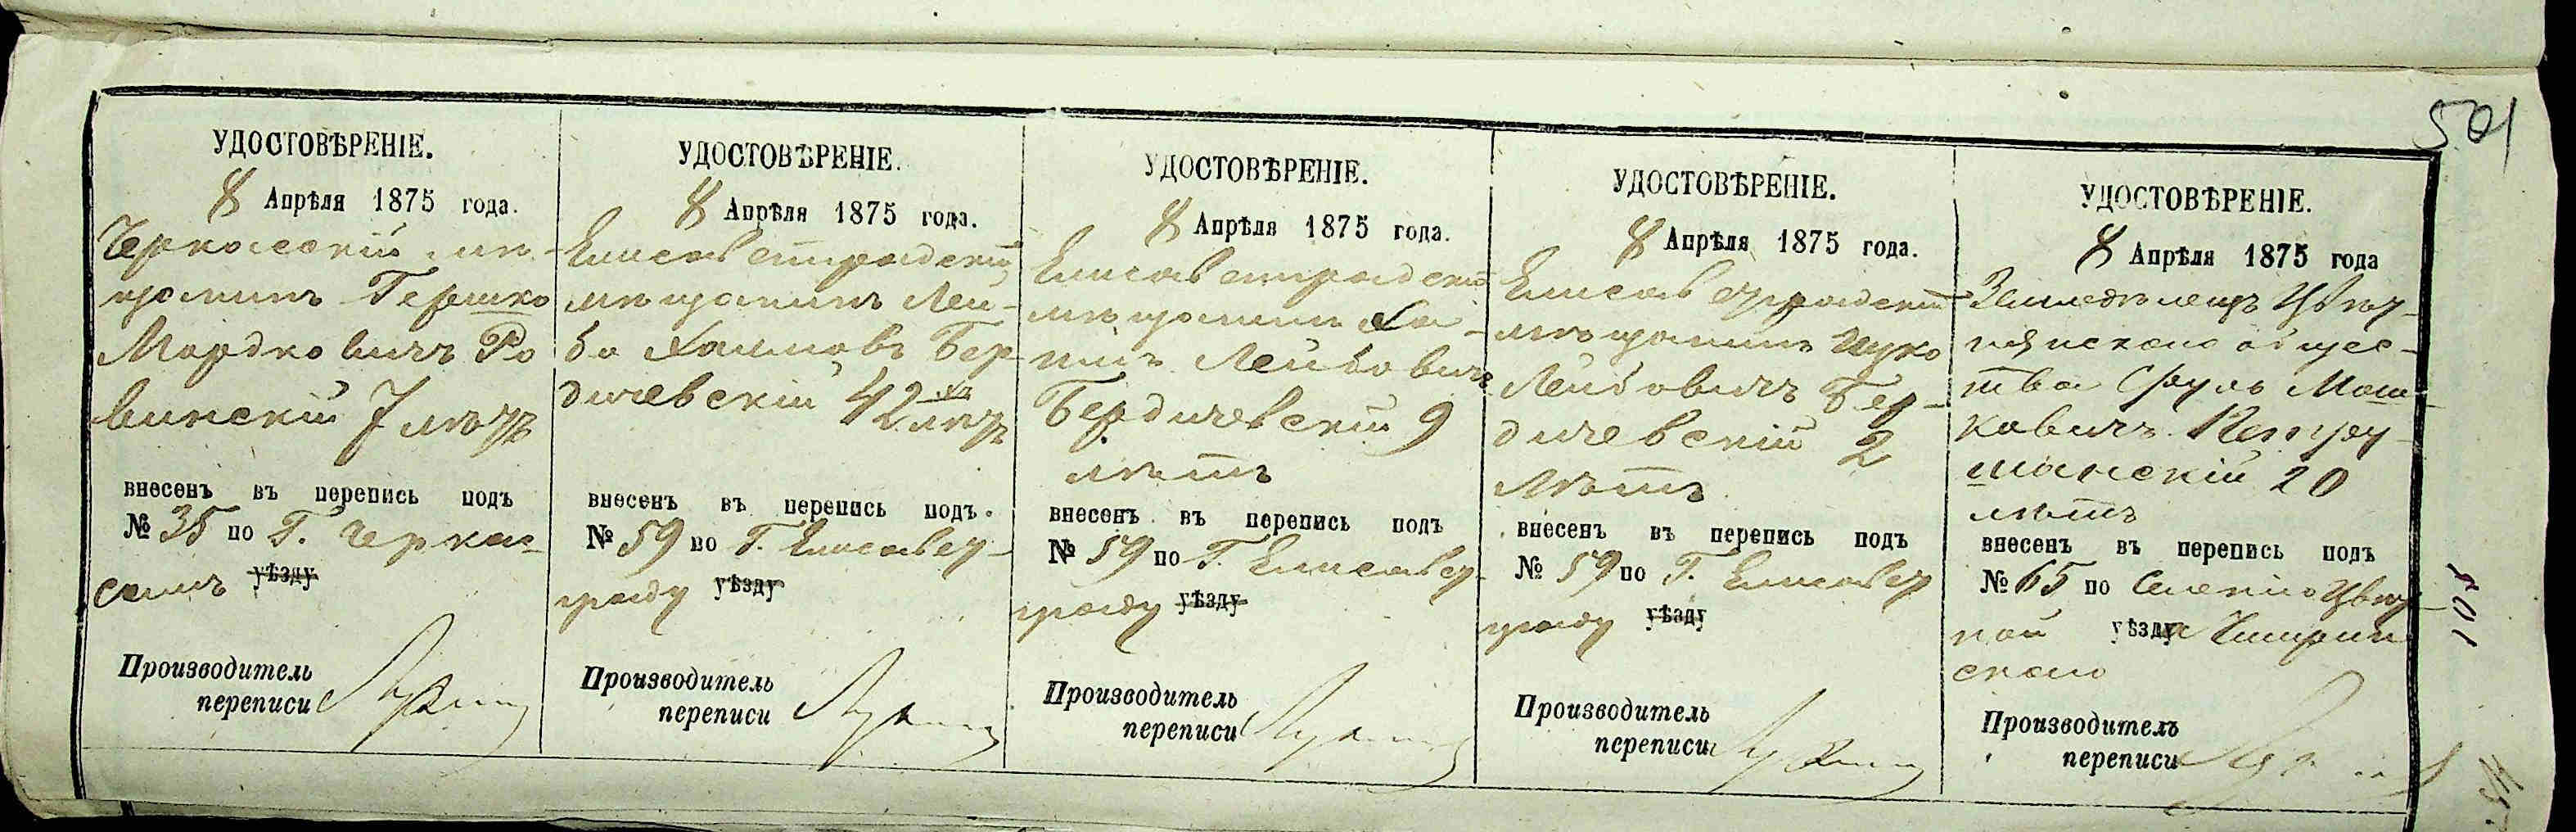 501
УДОСТОВѢРЕНІЕ.
8 Апрѣля 1875 года.
Черкасскій мѣ-
щанинъ Гершко
Мордковичъ Ро
винскій 7 лѣтъ
внесенъ въ перепись подъ
№ 35 по Г. Черкас-
самъ уѣзду
Производитель
переписи
УДОСТОВѢРЕНІЕ.
8 Апрѣля 1875 года.
Елисаветградскій
мѣщанинъ Лей-
ба Хаимовъ Бер
дичевскій 42 лѣтъ
внесенъ въ перепись подъ.
№ 59 по Г. Елисавет-
граду уѣзду
Производитель
переписи
УДОСТОВѢРЕНІЕ.
8 Апрѣля 1875 года.
Елисаветградскій
мѣщанинъ
Лейбовичъ
Бердичевскій 9
лѣтъ
внесенъ въ перепись подъ
№ 59 по Г. Елисавет-
граду уѣзду
Производитель
переписи
УДОСТОВѢРЕНІЕ.
8 Апрѣля 1875 года.
Елисаветградскій
мѣщанинъ Ицко
Лейбовичъ Бер-
дичевскій 2
лѣтъ
внесенъ въ перепись подъ
№ 59 по Г. Елисавет
граду уѣзду
Производитель
переписи
УДОСТОВѢРЕНІЕ.
8 Апрѣля 1875 года
Земледѣлецъ Цвѣт-
нянскаго общес-
тва Сруль Мош-
ковичъ Петру-
шанскій 20
лѣтъ
внесенъ въ перепись подъ
№ 65 по Селенію Цвѣт-
ной уѣзда Чигрин
скаго
Производитель
переписи
501